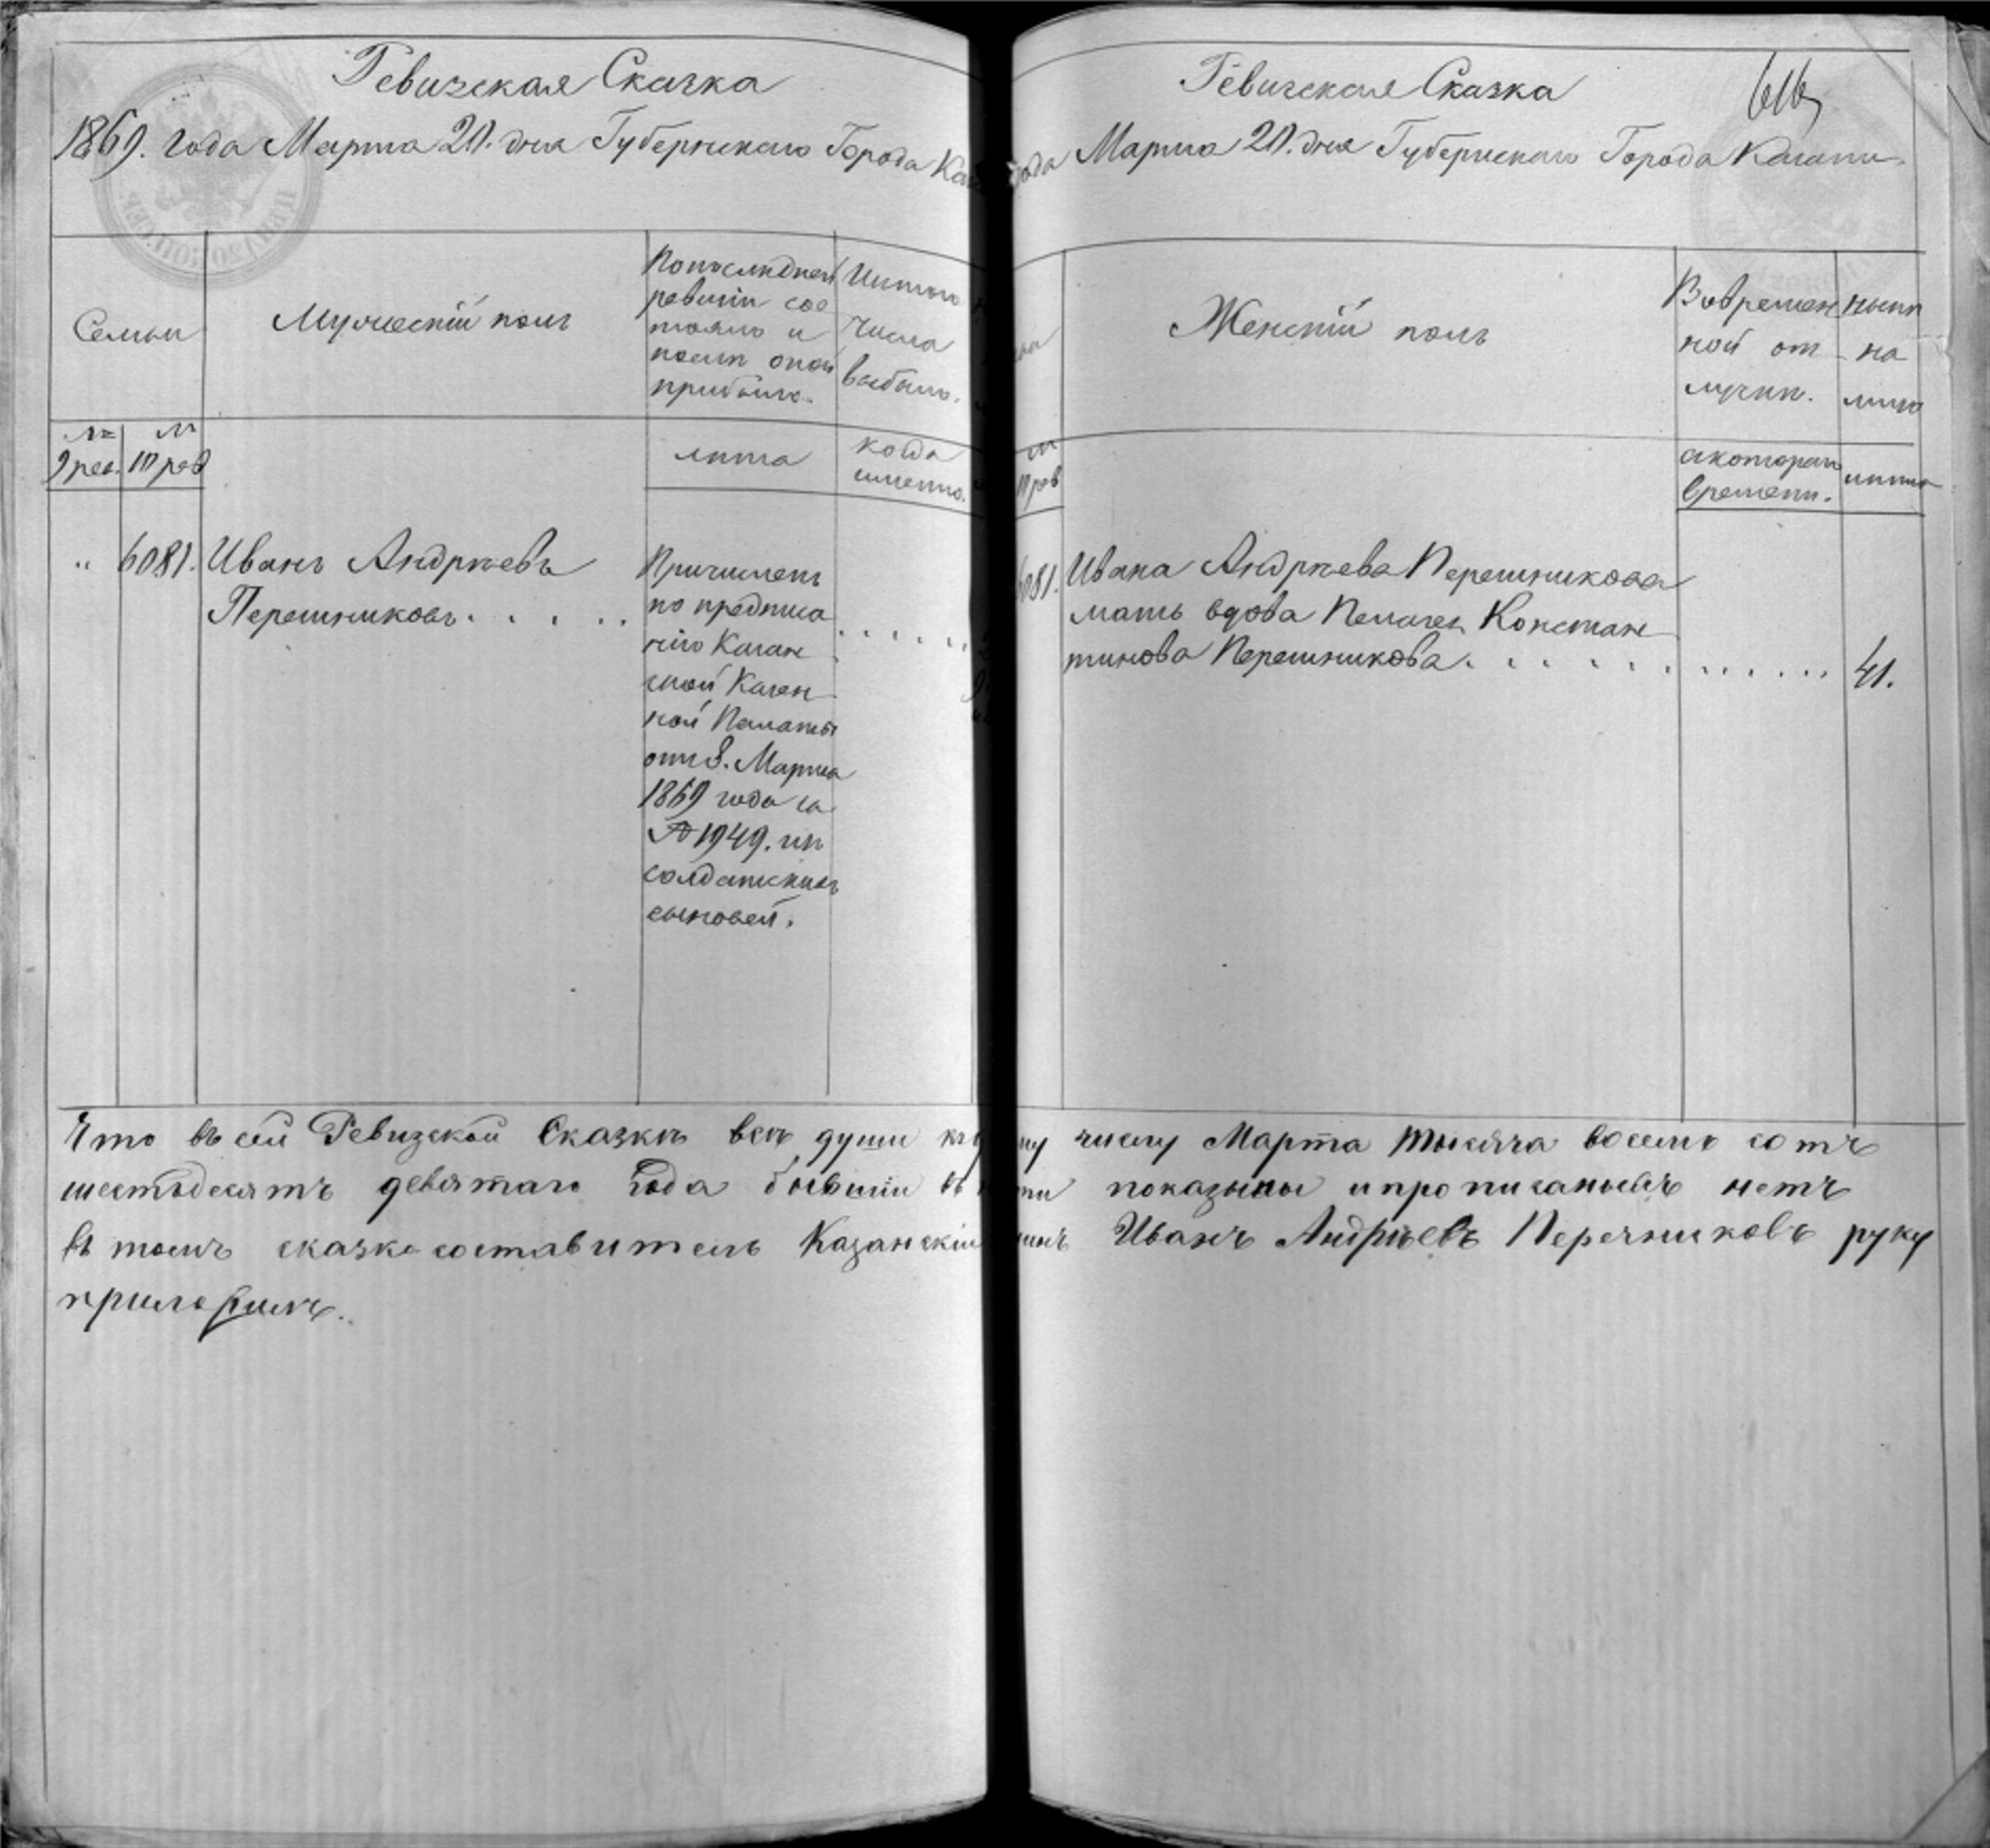 Ревизская Сказка
1869. года Марта 20. дня Губернскаго Города Каз
Семьи
Мужескій полъ
Попоследней
ревизіи сос
тояло и
после оной
прибыло.
Изтого
числа
выбыло.
№ №
9 рев. 10 рев
лета
когда
именно.
„ 6081. Иванъ Андреевъ
Перешниковъ. . . . .
Причисленъ
по предписа
нію Казан
ской Казен
ной Палаты
отъ 8. Марта
1869 года за
№ 1949. изъ
солдатскихъ
сыновей.
Ревизская Сказка
616
года Марта 20. дня Губернскаго Города Казани
Женскій полъ
Вовремен
ной от
лучке.
ныне
на
лицо
№
10 рев
скотораго
времени.
лета
6081. Ивана Андреева Перешникова
мать вдова Пелагея Констан
тинова Перешникова. . . . . . . . . . . . 41.
Что въ сей Ревизской Сказкѣ всѣ души къ му числу Марта тысяча восемь сотъ
шестьдесятъ девятаго года бывшіи въ показыны ипрописаныхъ нетъ
въ томъ сказкосоставитель Казанскій Иванъ Андрѣевъ Перечниковъ руку
приложилъ.